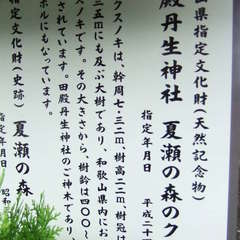 山県指定文化財(天然記念物)
殿丹生神社 夏瀬の森のク
指定年月日 平成二十
クスノキは、幹周七・三二m、樹高二二m、樹冠は
三五mにも及ぶ大樹であり、和歌山県内にお
ノキです。その大きさから、樹齢は四〇〇〜
されています。田殿丹生神社のご神木であり、
ボルにもなっています。
指定文化財(史跡) 夏瀬の森
指定年月日 昭和